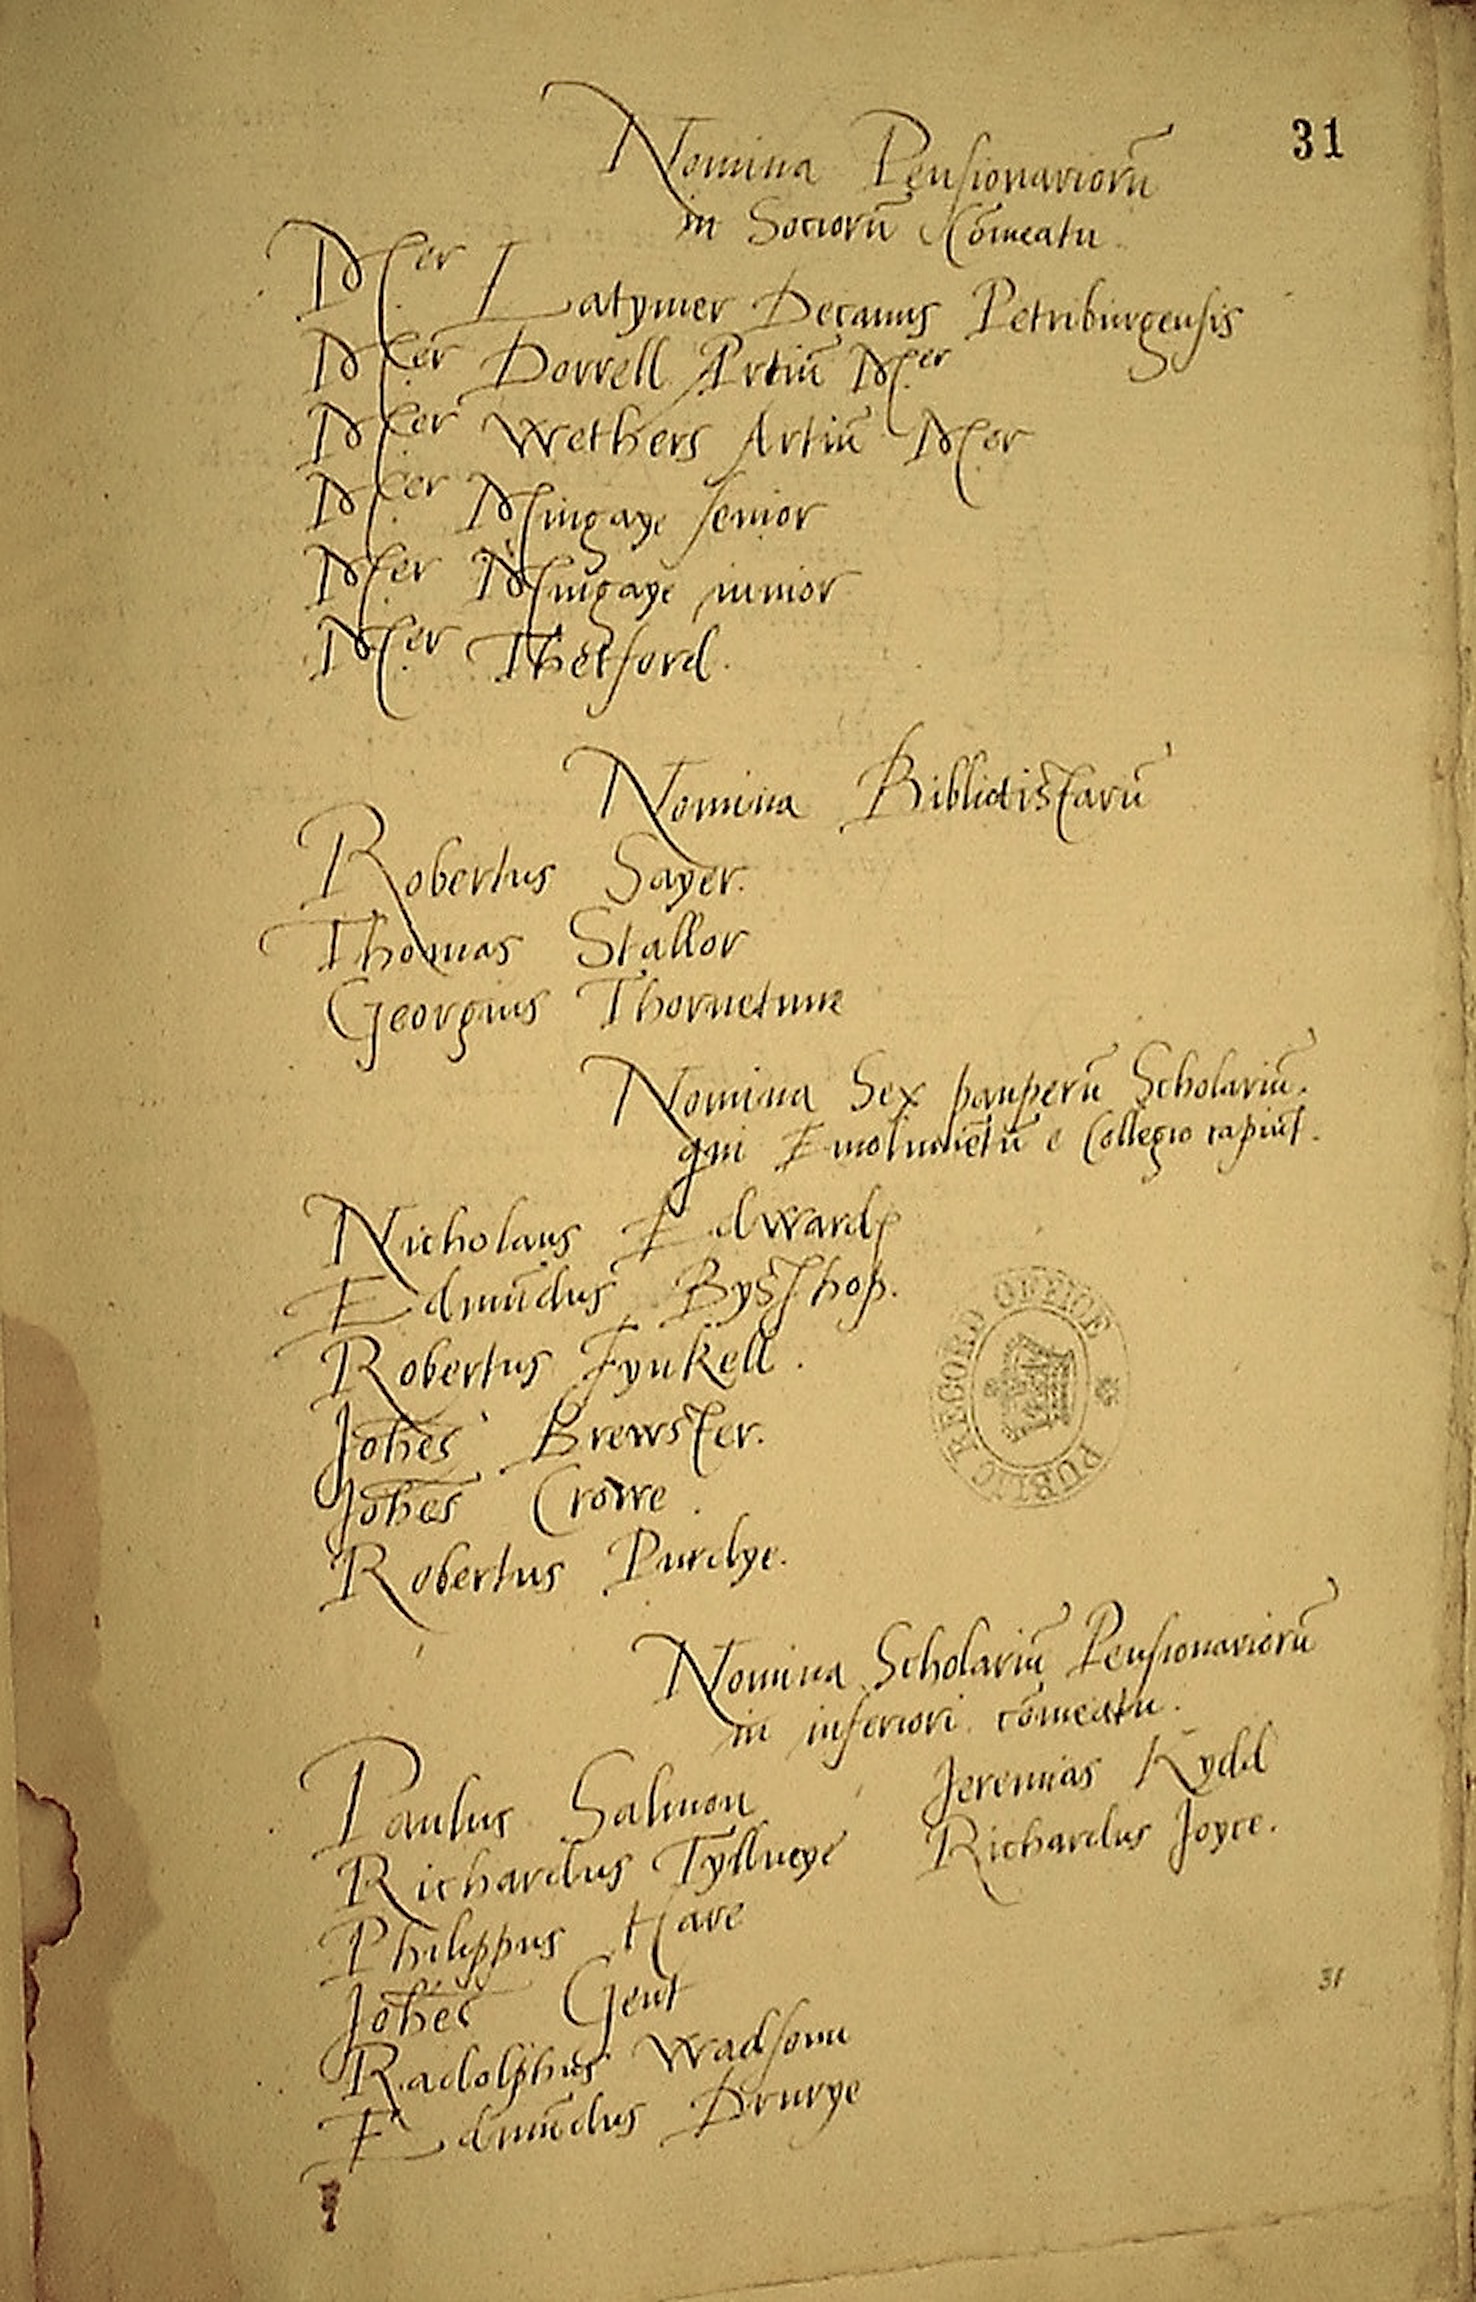 31
Nomina Pensionariorū
in Sociorū Cōmeatu.
Mer Latymer Decanus Petriburgensis
Mer Dorrell Artiū Mer
Mer Wethers Artiū Mer
Mer Mingaye senior
Mer Mingaye iunior
Mer Thetford.
Nomina Bibliotistarū
Robertus Sayer.
Thomas Stallor
Georgius Thornetune
Nomina Sex pauperū Scholariū.
qui Emolumētū e Collegio capiūt.
Nicholaus Edwardꝭ
Edmūdus Bysshop.
Robertus Fynkell.
Johēs Brewster.
Johēs Crowe.
Robertus Purdye.
Nomina Scholariū Pensionariorū
in inferiori cōmeatu.
Paulus Salmon
Richardus Tyllneye
Philippus Hare
Johēs Gent
Radolphus Wadsonn
Edmūdus Drurye
Jeremias Kydd
Richardus Joyce.
PUBLIC RECORD OFFICE
31